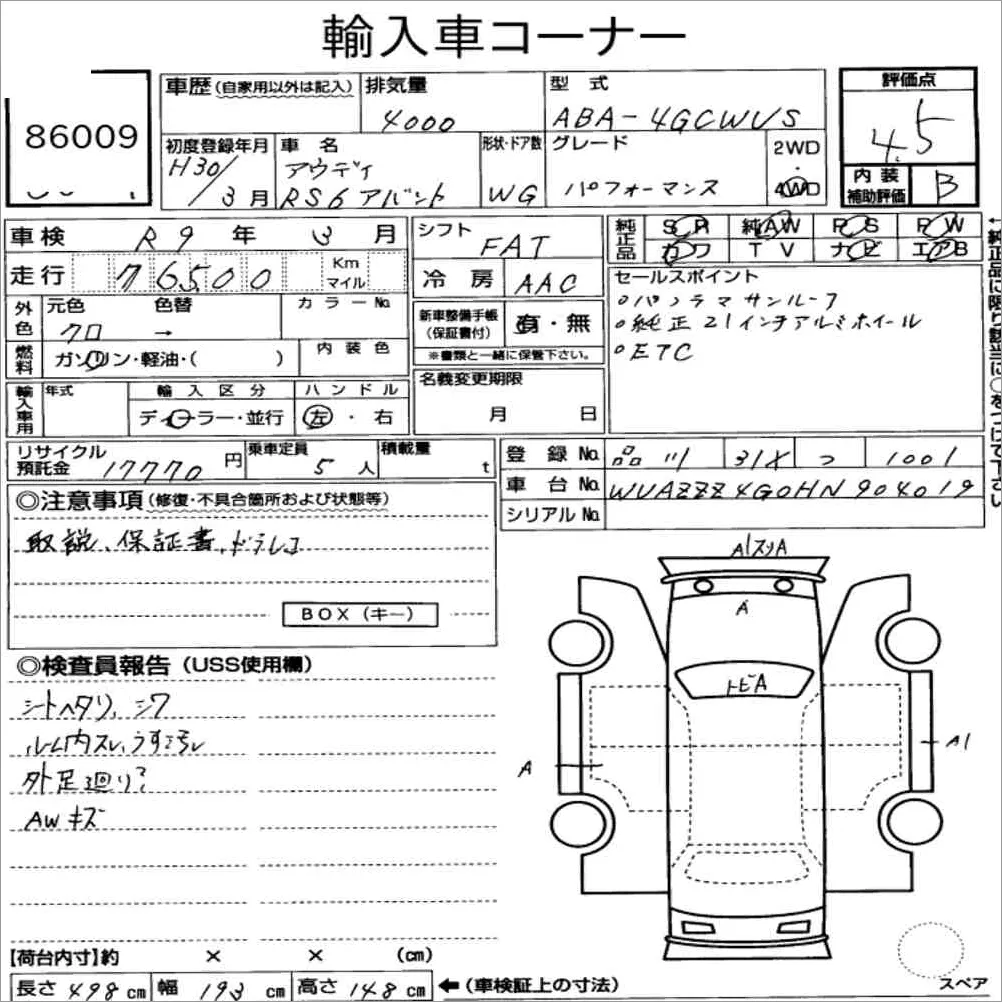 輸入車コーナー
86009
車歴 (自家用以外は記入) 排気量 4000 型式 ABA-4GCWUS 評価点 4.5
初度登録年月 H30/3月 車名 アウディ RS6アバント 形状・ドア数 WG グレード パフォーマンス 2WD 4WD 内装補助評価 B
車検 R9年 3月 シフト FAT 純正品 SR 純AW PS PW
カワ TV ナビ エアB
走行 76500 Km マイル 冷房 AAC
外色 元色 クロ 色替 → カラーNo. 新車整備手帳 (保証書付) 有・無
※書類と一緒に保管下さい。
セールスポイント
○パノラマサンルーフ
○純正21インチアルミホイール
○ETC
←純正品に限り該当に○をつけて下さい
燃料 ガソリン・軽油・( ) 内装色
名義変更期限 月 日
輸入車用 年式 輸入区分 ディーラー・並行 ハンドル 左・右
リサイクル預託金 17770円 乗車定員 5人 積載量 t
登録No. 品川 31X つ 1001
車台No. WUAZZZ4G0HN904019
シリアルNo.
◎注意事項 (修復・不具合箇所および状態等)
取説、保証書、ドラレコ
BOX(キー)
◎検査員報告 (USS使用欄)
シートヘタリ、シワ
ルーム内スレ、うす汚レ
外足廻り?
AWキズ
A1スリA
A
トビA
A
A1
【荷台内寸】約 × × (cm)
長さ 498cm 幅 193cm 高さ 148cm ←(車検証上の寸法)
スペア